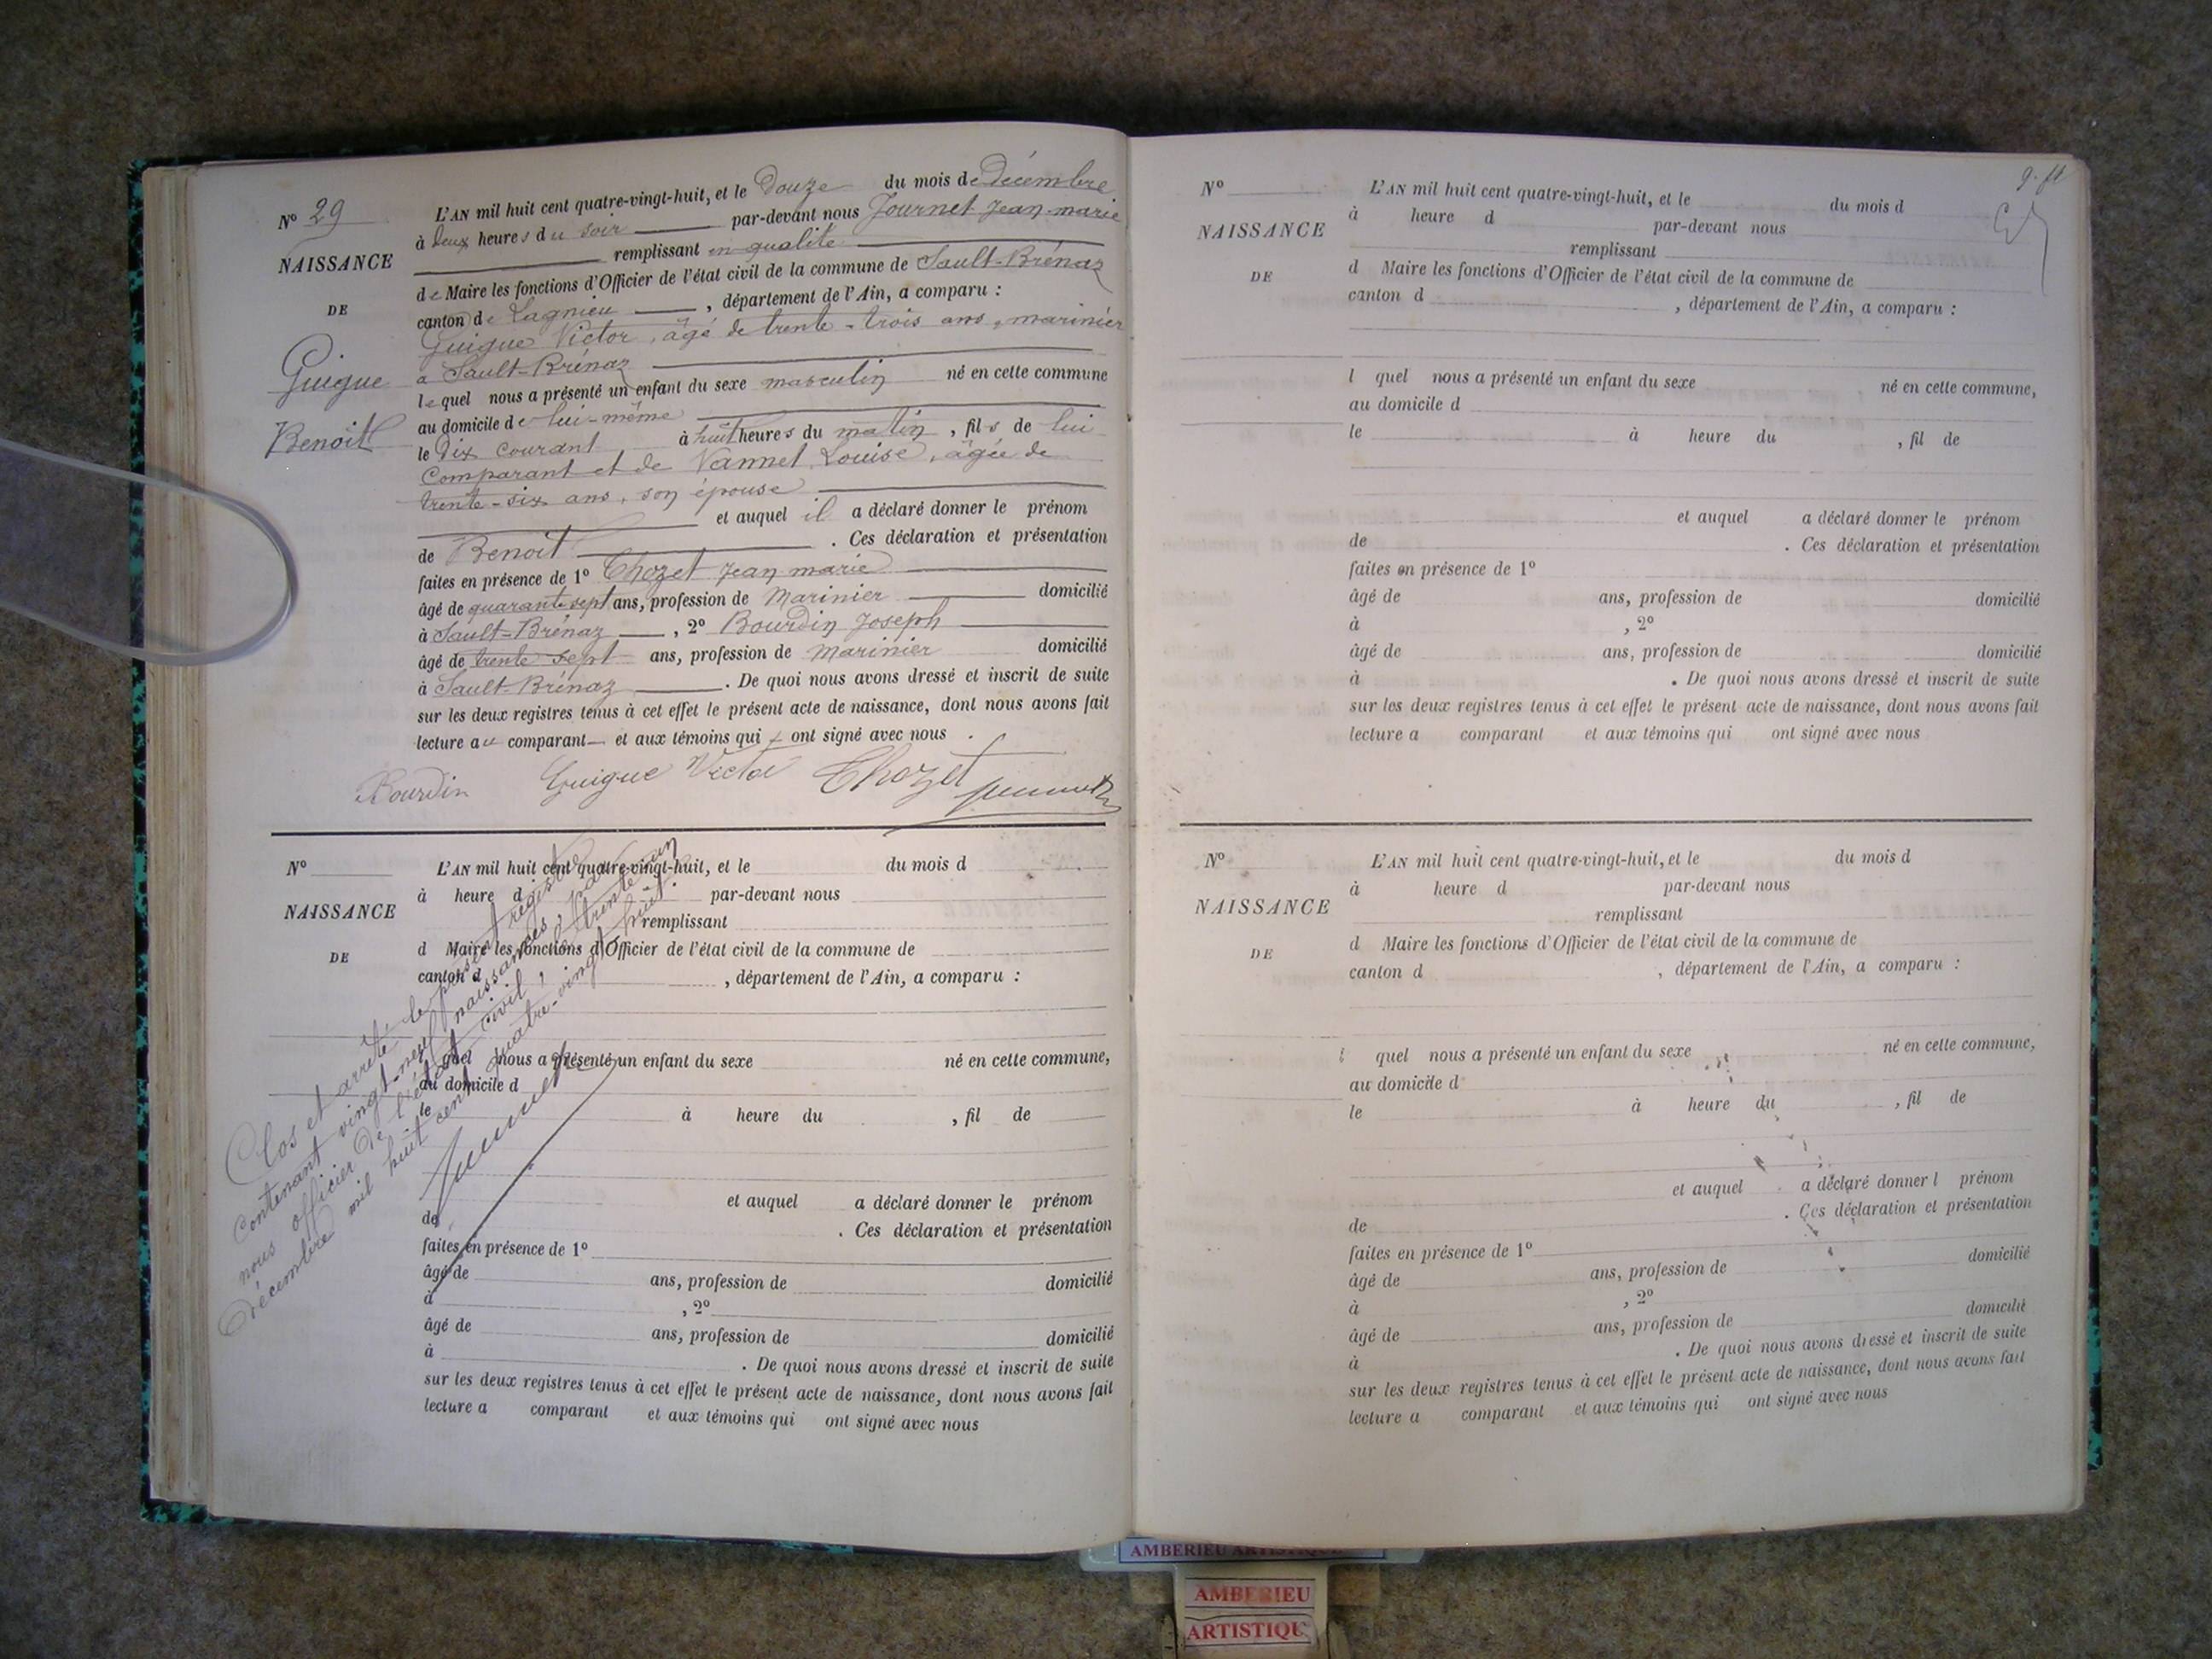 N° 29
NAISSANCE
DE
Guigue
Benoit
L'AN mil huit cent quatre-vingt-huit, et le Douze du mois de Décembre
à deux heures du soir par-devant nous Journet Jean-marie
remplissant en qualité
de Maire les fonctions d'Officier de l'état civil de la commune de Sault-Brénaz
canton de Lagnieu, département de l'Ain, a comparu :
Guigue Victor, âgé de trente-trois ans, marinier
à Sault-Brénaz
lequel nous a présenté un enfant du sexe masculin né en cette commune
au domicile de lui-même
le Dix courant à huit heures du matin, fils de lui
Comparant et de Vannet Louise, âgée de
trente-six ans, son épouse
et auquel il a déclaré donner le prénom
de Benoit. Ces déclaration et présentation
faites en présence de 1° Chozet Jean marie
âgé de quarante sept ans, profession de Marinier domicilié
à Sault-Brénaz, 2° Bourdin Joseph
âgé de trente sept ans, profession de Marinier domicilié
à Sault-Brénaz. De quoi nous avons dressé et inscrit de suite
sur les deux registres tenus à cet effet le présent acte de naissance, dont nous avons fait
lecture au comparant et aux témoins qui ont signé avec nous.
Bourdin Guigue Victor Chozet
N°
NAISSANCE
DE
L'AN mil huit cent quatre-vingt-huit, et le du mois d
à heure d par-devant nous
remplissant
d Maire les fonctions d'Officier de l'état civil de la commune de
canton d , département de l'Ain, a comparu :
l quel nous a présenté un enfant du sexe né en cette commune,
au domicile d
le à heure du , fil de
et auquel a déclaré donner le prénom
de . Ces déclaration et présentation
faites en présence de 1°
âgé de ans, profession de domicilié
à , 2°
âgé de ans, profession de domicilié
à . De quoi nous avons dressé et inscrit de suite
sur les deux registres tenus à cet effet le présent acte de naissance, dont nous avons fait
lecture a comparant et aux témoins qui ont signé avec nous
Clos et arrêté le présent registre
contenant vingt-neuf naissances, par
nous officier de l'état civil, le trente-un
Décembre mil huit cent quatre-vingt huit.
N°
NAISSANCE
DE
L'AN mil huit cent quatre-vingt-huit, et le du mois d
à heure d par-devant nous
remplissant
d Maire les fonctions d'Officier de l'état civil de la commune de
canton d , département de l'Ain, a comparu :
l quel nous a présenté un enfant du sexe né en cette commune,
au domicile d
le à heure du , fil de
et auquel a déclaré donner le prénom
de . Ces déclaration et présentation
faites en présence de 1°
âgé de ans, profession de domicilié
à , 2°
âgé de ans, profession de domicilié
à . De quoi nous avons dressé et inscrit de suite
sur les deux registres tenus à cet effet le présent acte de naissance, dont nous avons fait
lecture a comparant et aux témoins qui ont signé avec nous
N°
NAISSANCE
DE
L'AN mil huit cent quatre-vingt-huit, et le du mois d
à heure d par-devant nous
remplissant
d Maire les fonctions d'Officier de l'état civil de la commune de
canton d , département de l'Ain, a comparu :
l quel nous a présenté un enfant du sexe né en cette commune,
au domicile d
le à heure du , fil de
et auquel a déclaré donner l prénom
de . Ces déclaration et présentation
faites en présence de 1°
âgé de ans, profession de domicilié
à , 2°
âgé de ans, profession de domicilié
à . De quoi nous avons dressé et inscrit de suite
sur les deux registres tenus à cet effet le présent acte de naissance, dont nous avons fait
lecture a comparant et aux témoins qui ont signé avec nous
AMBERIEU ARTISTIQUE
AMBERIEU
ARTISTIQU